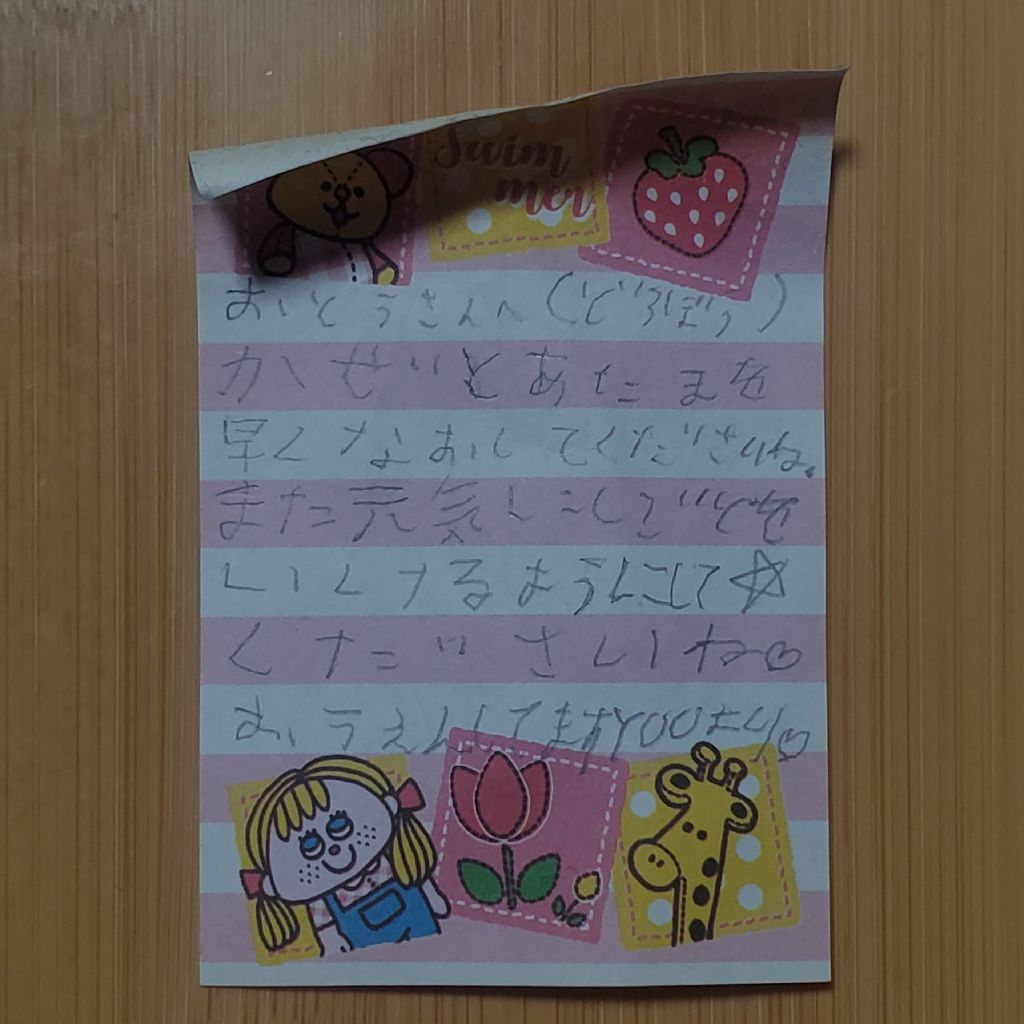 Swim
mer
おとうさんへ(どろぼう)
かぜとあたまを
早くなおしてくださいね。
また元気にして
いけるようにして☆
くださいね♡
おうえんしてますYOOより♡